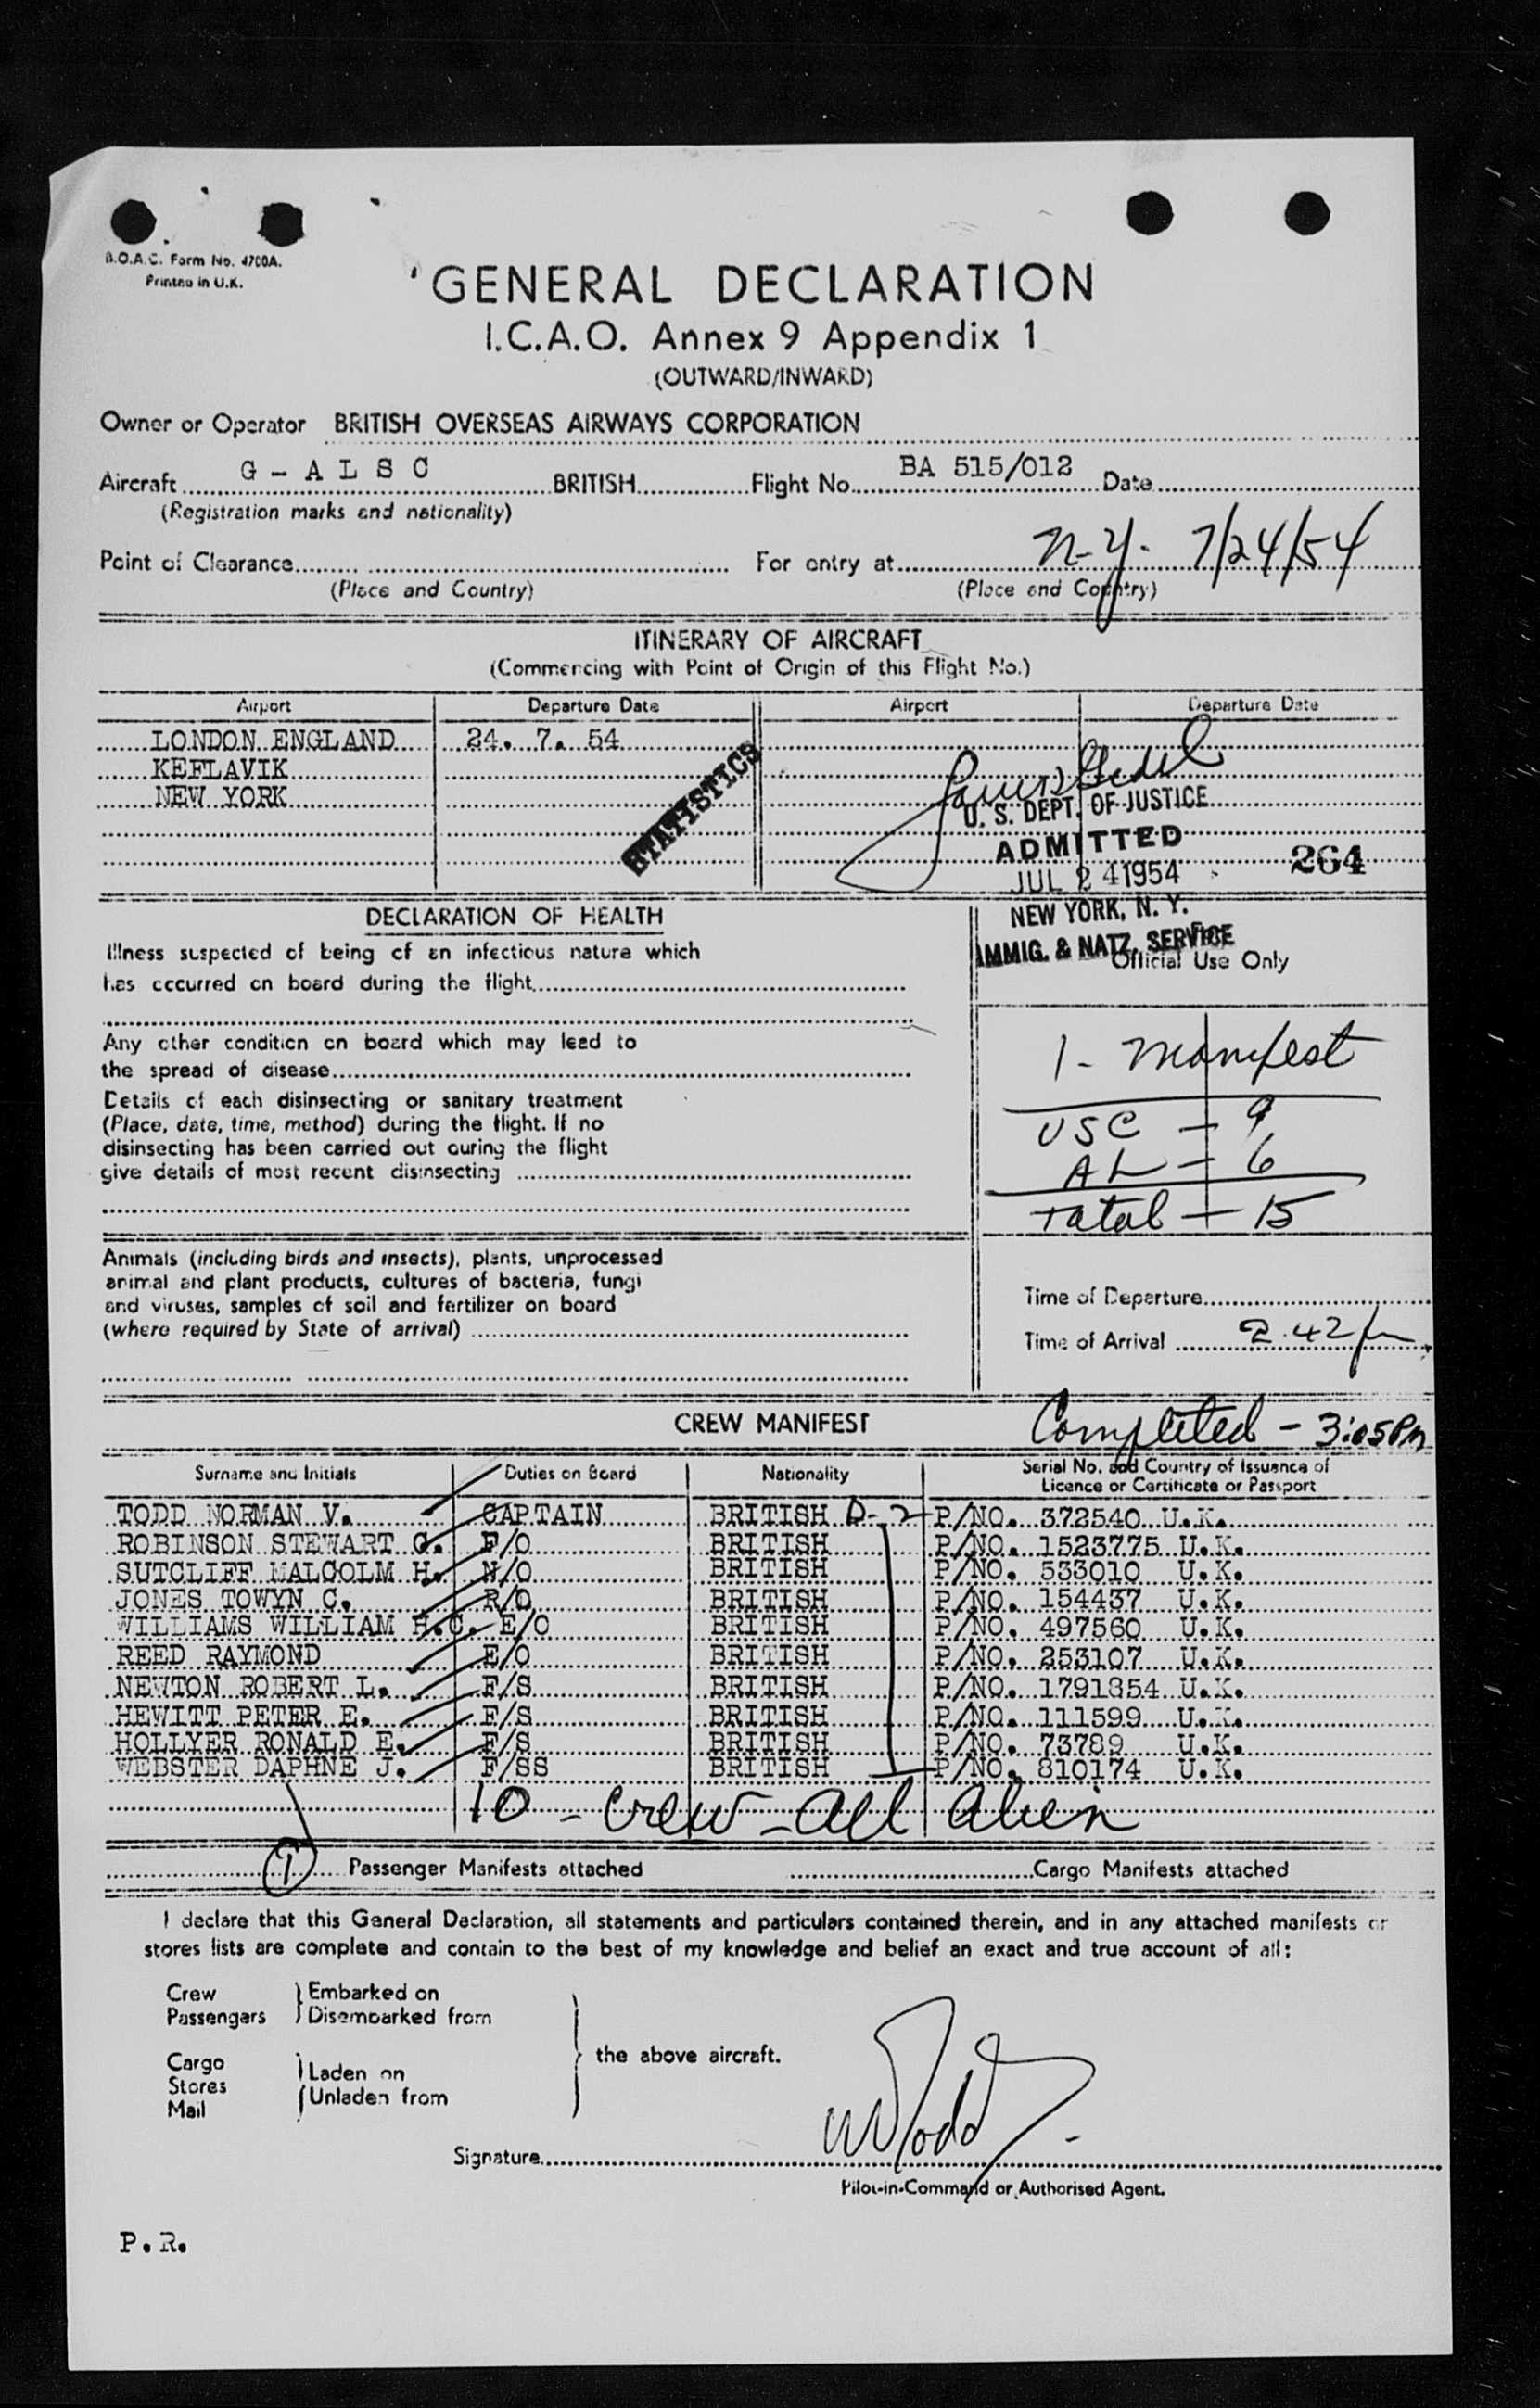 B.O.A.C. Form No. 4700A.
Printed in U.K.
GENERAL DECLARATION
I.C.A.O. Annex 9 Appendix 1
(OUTWARD/INWARD)
Owner or Operator BRITISH OVERSEAS AIRWAYS CORPORATION
Aircraft G - A L S C BRITISH Flight No. BA 515/012 Date
(Registration marks and nationality)
Point of Clearance For entry at N-Y- 7/24/54
(Place and Country) (Place and Country)
ITINERARY OF AIRCRAFT
(Commencing with Point of Origin of this Flight No.)
Airport Departure Date Airport Departure Date
LONDON ENGLAND 24. 7. 54
KEFLAVIK
NEW YORK
STATISTICS
U. S. DEPT. OF JUSTICE
ADMITTED
JUL 24 1954
264
NEW YORK, N. Y.
IMMIG. & NATZ. SERVICE
Official Use Only
DECLARATION OF HEALTH
Illness suspected of being of an infectious nature which
has occurred on board during the flight
Any other condition on board which may lead to
the spread of disease
Details of each disinsecting or sanitary treatment
(Place, date, time, method) during the flight. If no
disinsecting has been carried out during the flight
give details of most recent disinsecting
1 - Manifest
USC - 9
AL - 6
Total - 15
Animals (including birds and insects), plants, unprocessed
animal and plant products, cultures of bacteria, fungi
and viruses, samples of soil and fertilizer on board
(where required by State of arrival)
Time of Departure
Time of Arrival 2.42 pm
CREW MANIFEST
Completed - 3:05 PM
Surname and Initials Duties on Board Nationality Serial No. and Country of Issuance of
Licence or Certificate or Passport
TODD NORMAN V. CAPTAIN BRITISH D-2 P/NO. 372540 U.K.
ROBINSON STEWART G. F/O BRITISH P/NO. 1523775 U.K.
SUTCLIFF MALCOLM H. N/O BRITISH P/NO. 533010 U.K.
JONES TOWYN C. R/O BRITISH P/NO. 154437 U.K.
WILLIAMS WILLIAM H.C. E/O BRITISH P/NO. 497560 U.K.
REED RAYMOND E/O BRITISH P/NO. 253107 U.K.
NEWTON ROBERT L. F/S BRITISH P/NO. 1791854 U.K.
HEWITT PETER E. F/S BRITISH P/NO. 111599 U.K.
HOLLYER RONALD E. F/S BRITISH P/NO. 73789 U.K.
WEBSTER DAPHNE J. F/SS BRITISH P/NO. 810174 U.K.
10 - Crew - All Alien
1 Passenger Manifests attached Cargo Manifests attached
I declare that this General Declaration, all statements and particulars contained therein, and in any attached manifests or
stores lists are complete and contain to the best of my knowledge and belief an exact and true account of all:
Crew Embarked on
Passengers Disembarked from
the above aircraft.
Cargo Laden on
Stores
Mail Unladen from
Signature NVTodd
Pilot-in-Command or Authorised Agent.
P.R.